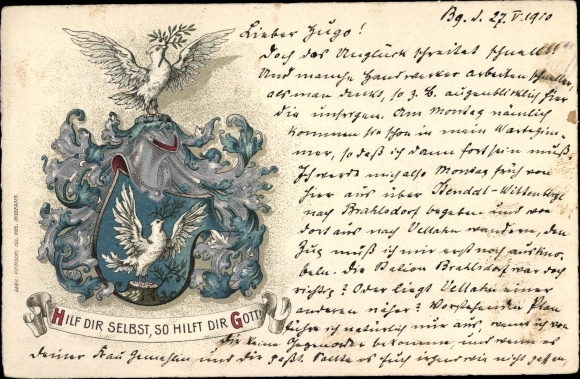 Bg. d. 27. V. 1910
Lieber Hugo!
Doch das Unglück schreitet schnell!!
Und manche Handwerker arbeiten schneller,
als man denkt, so z. B. augenblicklich hier
die unsrigen. Am Montag nämlich
kommen sie schon in mein Wartezim-
mer, so daß ich dann fort sein muß.
Ich werde mich also Montag früh von
hier aus über Stendal-Wittenberge
nach Brahlsdorf begeben und von
dort aus nach Vellahn wandern, den
Zug muß ich mir erst noch ausknobeln.
Die Station Brahlsdorf war doch
richtig? Oder liegt Vellahn einer
anderen näher? Vorstehenden Plan
führe ich natürlich nur aus, wenn ich von
Dir keine Gegenorder bekomme, und wenn es
Deiner Frau Gemahlin und Dir paßt. Sollte es Euch irgendwie nicht passen,
HILF DIR SELBST, SO HILFT DIR GOTT!